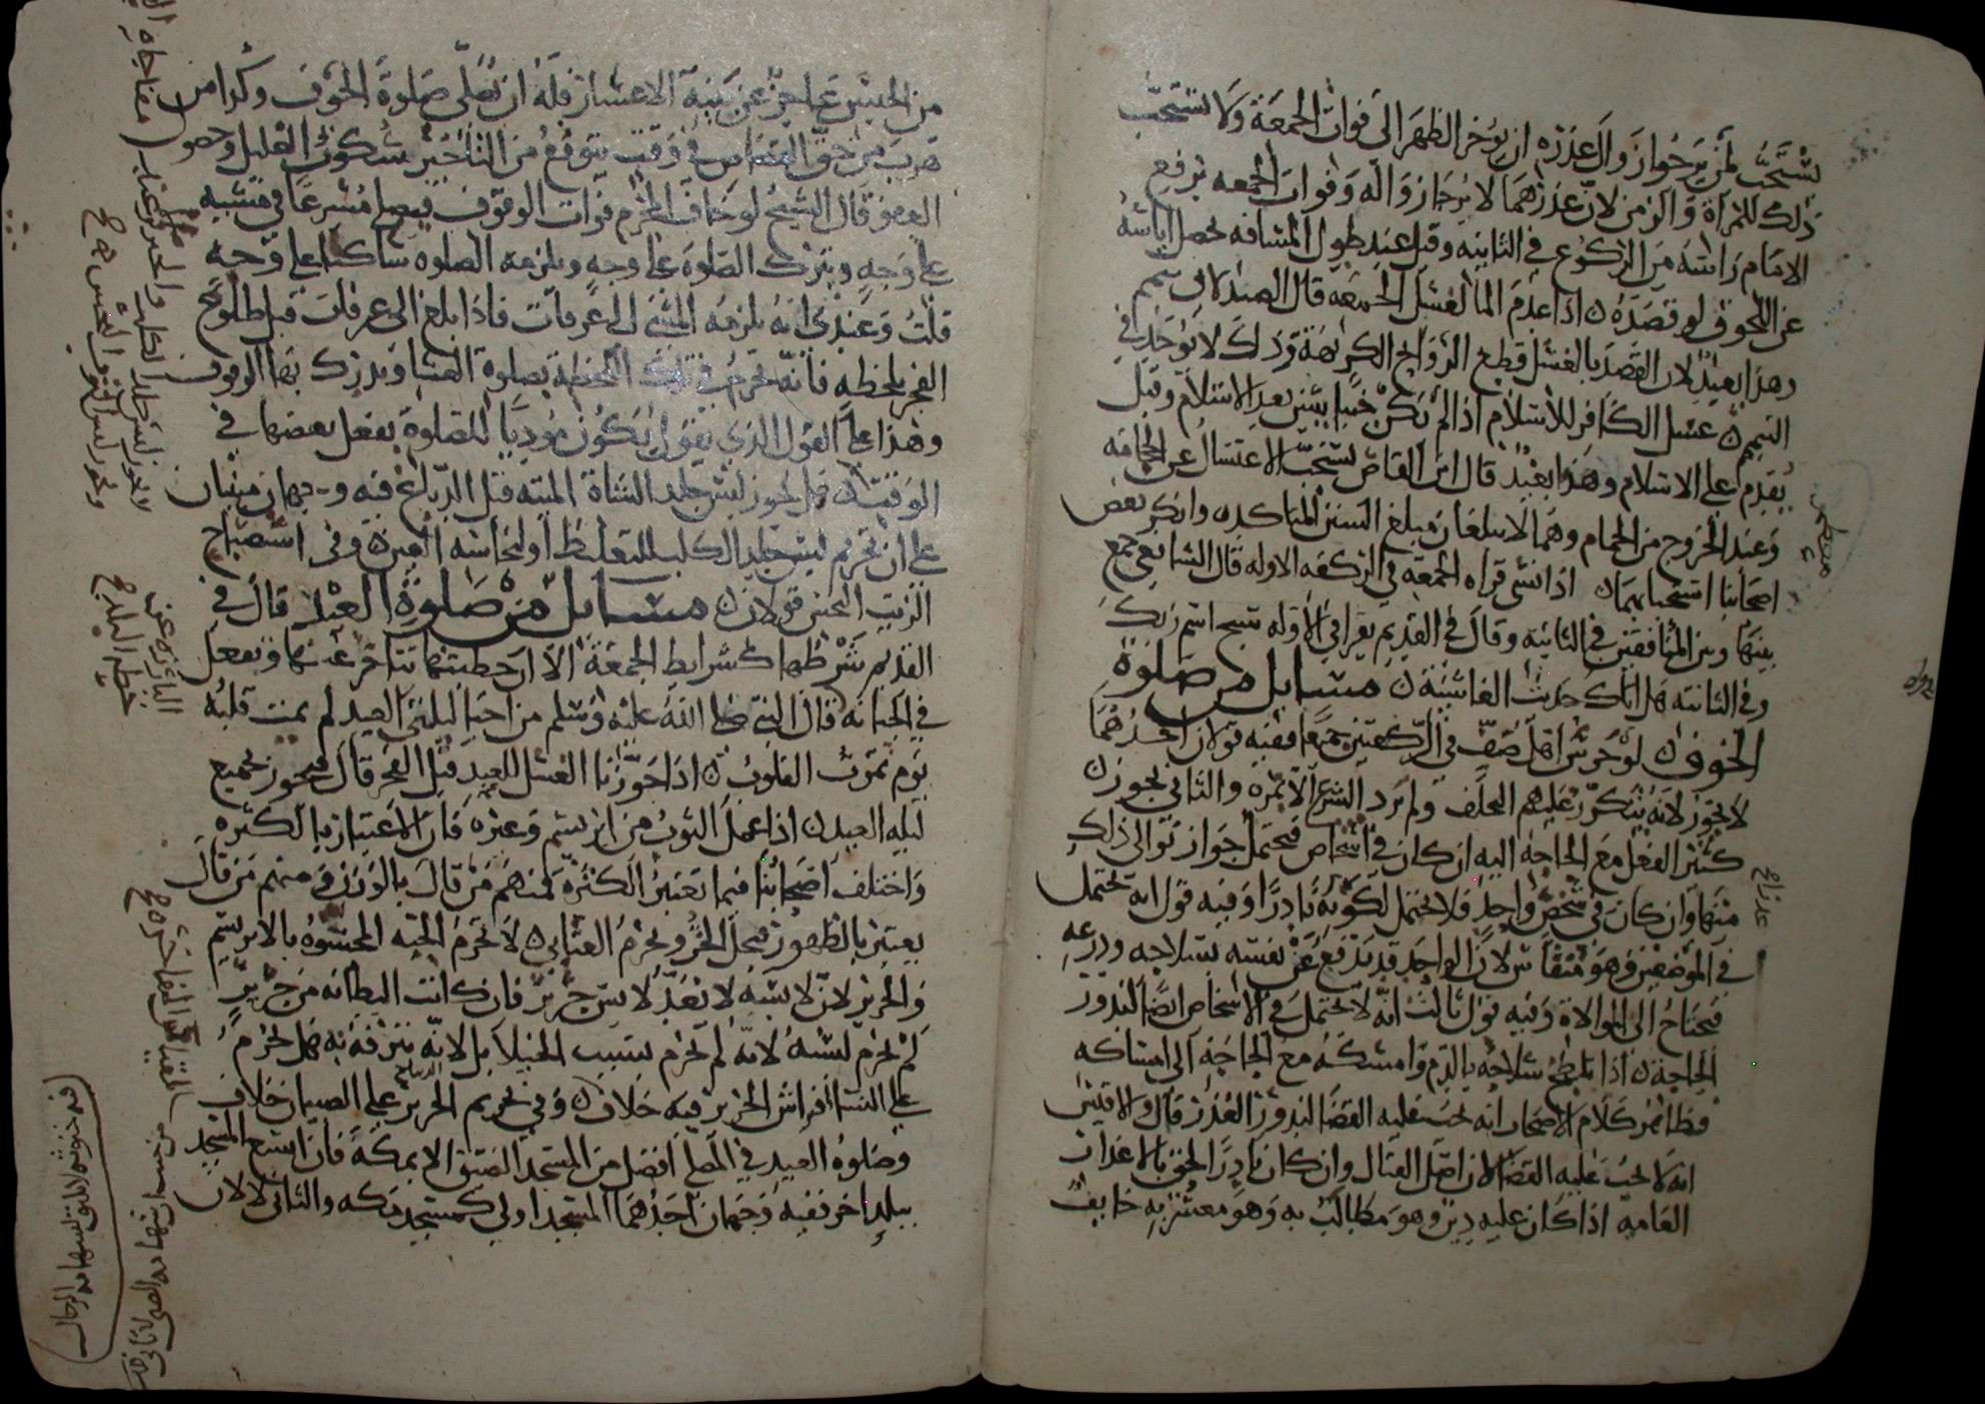 يستحب لمن يرجوا زوال عذره ان يوخر الظهر الى فوات الجمعة ولا يستحب
ذلك للمرأة والزمن لان عذرهما لا يرجا زواله وفوات الجمعه برفع
الامام راسه من الركوع في الثانيه وقيل عند طول المسافه يحصل اياسه
عن اللحوق لو قصده ن اذا عدم الما لغسل الجمعه قال الصيدلاني يتيمم
وهذا بعيد لان القصد بالغسل قطع الروايح الكريهة وذلك لا يوجد في
التيمم ن غسل الكافر للاسلام اذا لم يكن جنبا يسن بعد الاسلام وقيل
يقدم على الاسلام وهذا بعيد قال ابن القاص يستحب الاغتسال عن الحجامه
وعند الخروج من الحمام وهما لا يبلغان مبلغ السنن المتاكده وانكر بعض
اصحابنا استحبابهما ن اذا نسي قراه الجمعة في الركعه الاوله قال الشافعي جمع
بينها وبين المنافقين في الثانيه وقال في القديم يقرا في الاوله سبح اسم ربك
وفي الثانيه هل اتاك حديث الغاشية ن مسايل من صلوة
الخوف ن لو حرس اهل صف في الركعتين جميعا ففيه قولان احدهما
لا يجوز لانه يتكرر عليهم التخلف ولم يرد الشرع الا بمره والثاني يجوز ن
كثير الفعل مع الحاجة اليه ان كان في اشخاص فيحتمل جواز توالى ذلك
منها وان كان في شخص واحد فلا يحتمل لكونه نادرا وفيه قول انه يحتمل
في الموضعين وهو منقاس لان الواحد قد يدفع عن نفسه بسلاحه ودرعه
فيحتاج الى الموالاة وفيه قول ثالث انه لا يحتمل في الاشخاص ايضا لندور
الحاجة ن اذا تلطخ سلاحه بالدم وامسكه مع الحاجة الى امساكه
فظاهر كلام الاصحاب انه يجب عليه القضا لندور العذر قال والاقيس
انه لا يجب عليه القضا لان اصل القتال وان كان نادرا الحق بالاعذار
العامه اذا كان عليه دين وهو مطالب به وهو معسر به خايف
من الحبس عاجز عن بينة الاعسار فله ان يصلي صلوة الخوف وكذا من
هرب من حق القصاص في وقت يتوقع من التاخير سكون الغليل وحصو
العفو قال الشيخ لو خاف المحرم فوات الوقوف فيصلي مسرعا في مشيه
على وجه ويترك الصلوة على وجه ويلزمه الصلوه ساكنا على وجه
قلت وعندي انه يلزمه المشي الى عرفات فاذا بلغ الى عرفات قبل طلوع
الفجر بلحظه فانه يحرم في تلك اللحظة بصلوة العشا ويدرك بها الوقوف
وهذا على القول الذي يقول يكون موديا للصلوة بفعل بعضها في
الوقت ن هل يجوز لبس جلد الشاة الميته قبل الدباغ فيه وجهان مبنيان
على ان تحريم لبس جلد الكلب للتغليظ او لنجاسة العين ن وفي استصباح
الزيت النجس قولان ن مسايل من صلوة العيد قال في
القديم شرطها كشرايط الجمعة الا ان خطبتها تتاخر عنها وتفعل
في الجبانه قال النبي صلى الله عليه وسلم من احيا ليلتي العيد لم يمت قلبه
يوم تموت القلوب ن اذا جوزنا الغسل للعيد قبل الفجر قال يجوز بجميع
ليله العيد ن اذا عمل الثوب من ابريسم وغيره فان الاعتبار بالكثره
واختلف اصحابنا فيما تعتبر الكثرة فمنهم من قال بالوزن ومنهم من قال
يعتبر بالظهور فيحل الخز ويحرم العتابي ن لا تحرم الجبه المحشوه بالابريسم
والحرير لان لابسه لا يعد لابس حرير فان كانت البطانه من حرير
لم يحرم لبسه لانه لم يحرم لسبب الخيلا بل لانه يترفه به هل يحرم
على النسا افراش الحرير فيه خلاف ن وفي تحريم الحرير على الصبيان خلاف
وصلوة العيد في المصلى افضل من المسجد الضيق الا بمكة فان اتسع المسجد
ببلد اخر ففيه وجهان احدهما المسجد اولى كمسجد مكه والثاني لا لان